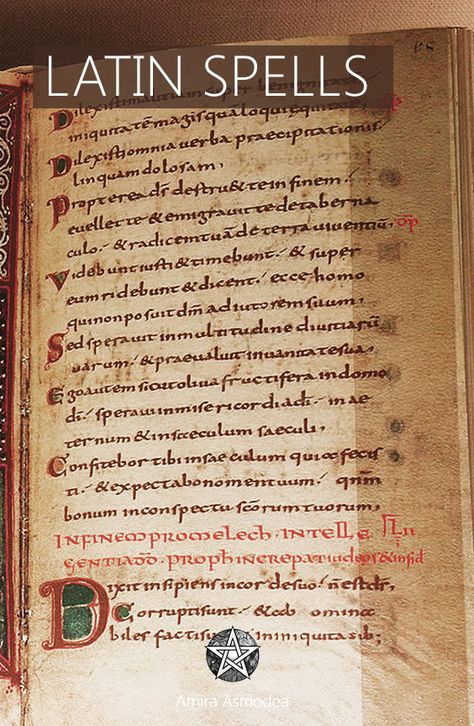 LATIN SPELLS
Dilexisti super benignitatē
iniquitatē magis quā loqui equitatē.
Dilexisti omnia verba praecipitationis
linguam dolosam,
Propterea d̄s destru&te in finem.
evellet te & emigravit te de taberna
culo. & radicem tuā de terra viventiū,
Videbunt iusti & timebunt. & super
eum ridebunt & dicent. ecce homo
qui non posuit d̄m adiutorem suum,
Sed speravit in multitudine divitiarū
suarum. & praevaluit in vanitate sua,
Ego autem sicut oliva fructifera in domo
d̄i. speravi in misericordia d̄i. in ae
ternum & in saeculum saeculi,
Confitebor tibi in saeculum quia fecis
ti. & expectabo nomen tuum. qn̄m
bonum in conspectu sc̄orum tuorum,
IN FINEM PRO MELECH. INTELLE LII
GENTIA PROPH INCREPAT
Dixit insipiens in corde suo. n̄ est d̄s,
Corrupti sunt. & ab omina
biles facti in iniquitatib;
Amira Asmodea